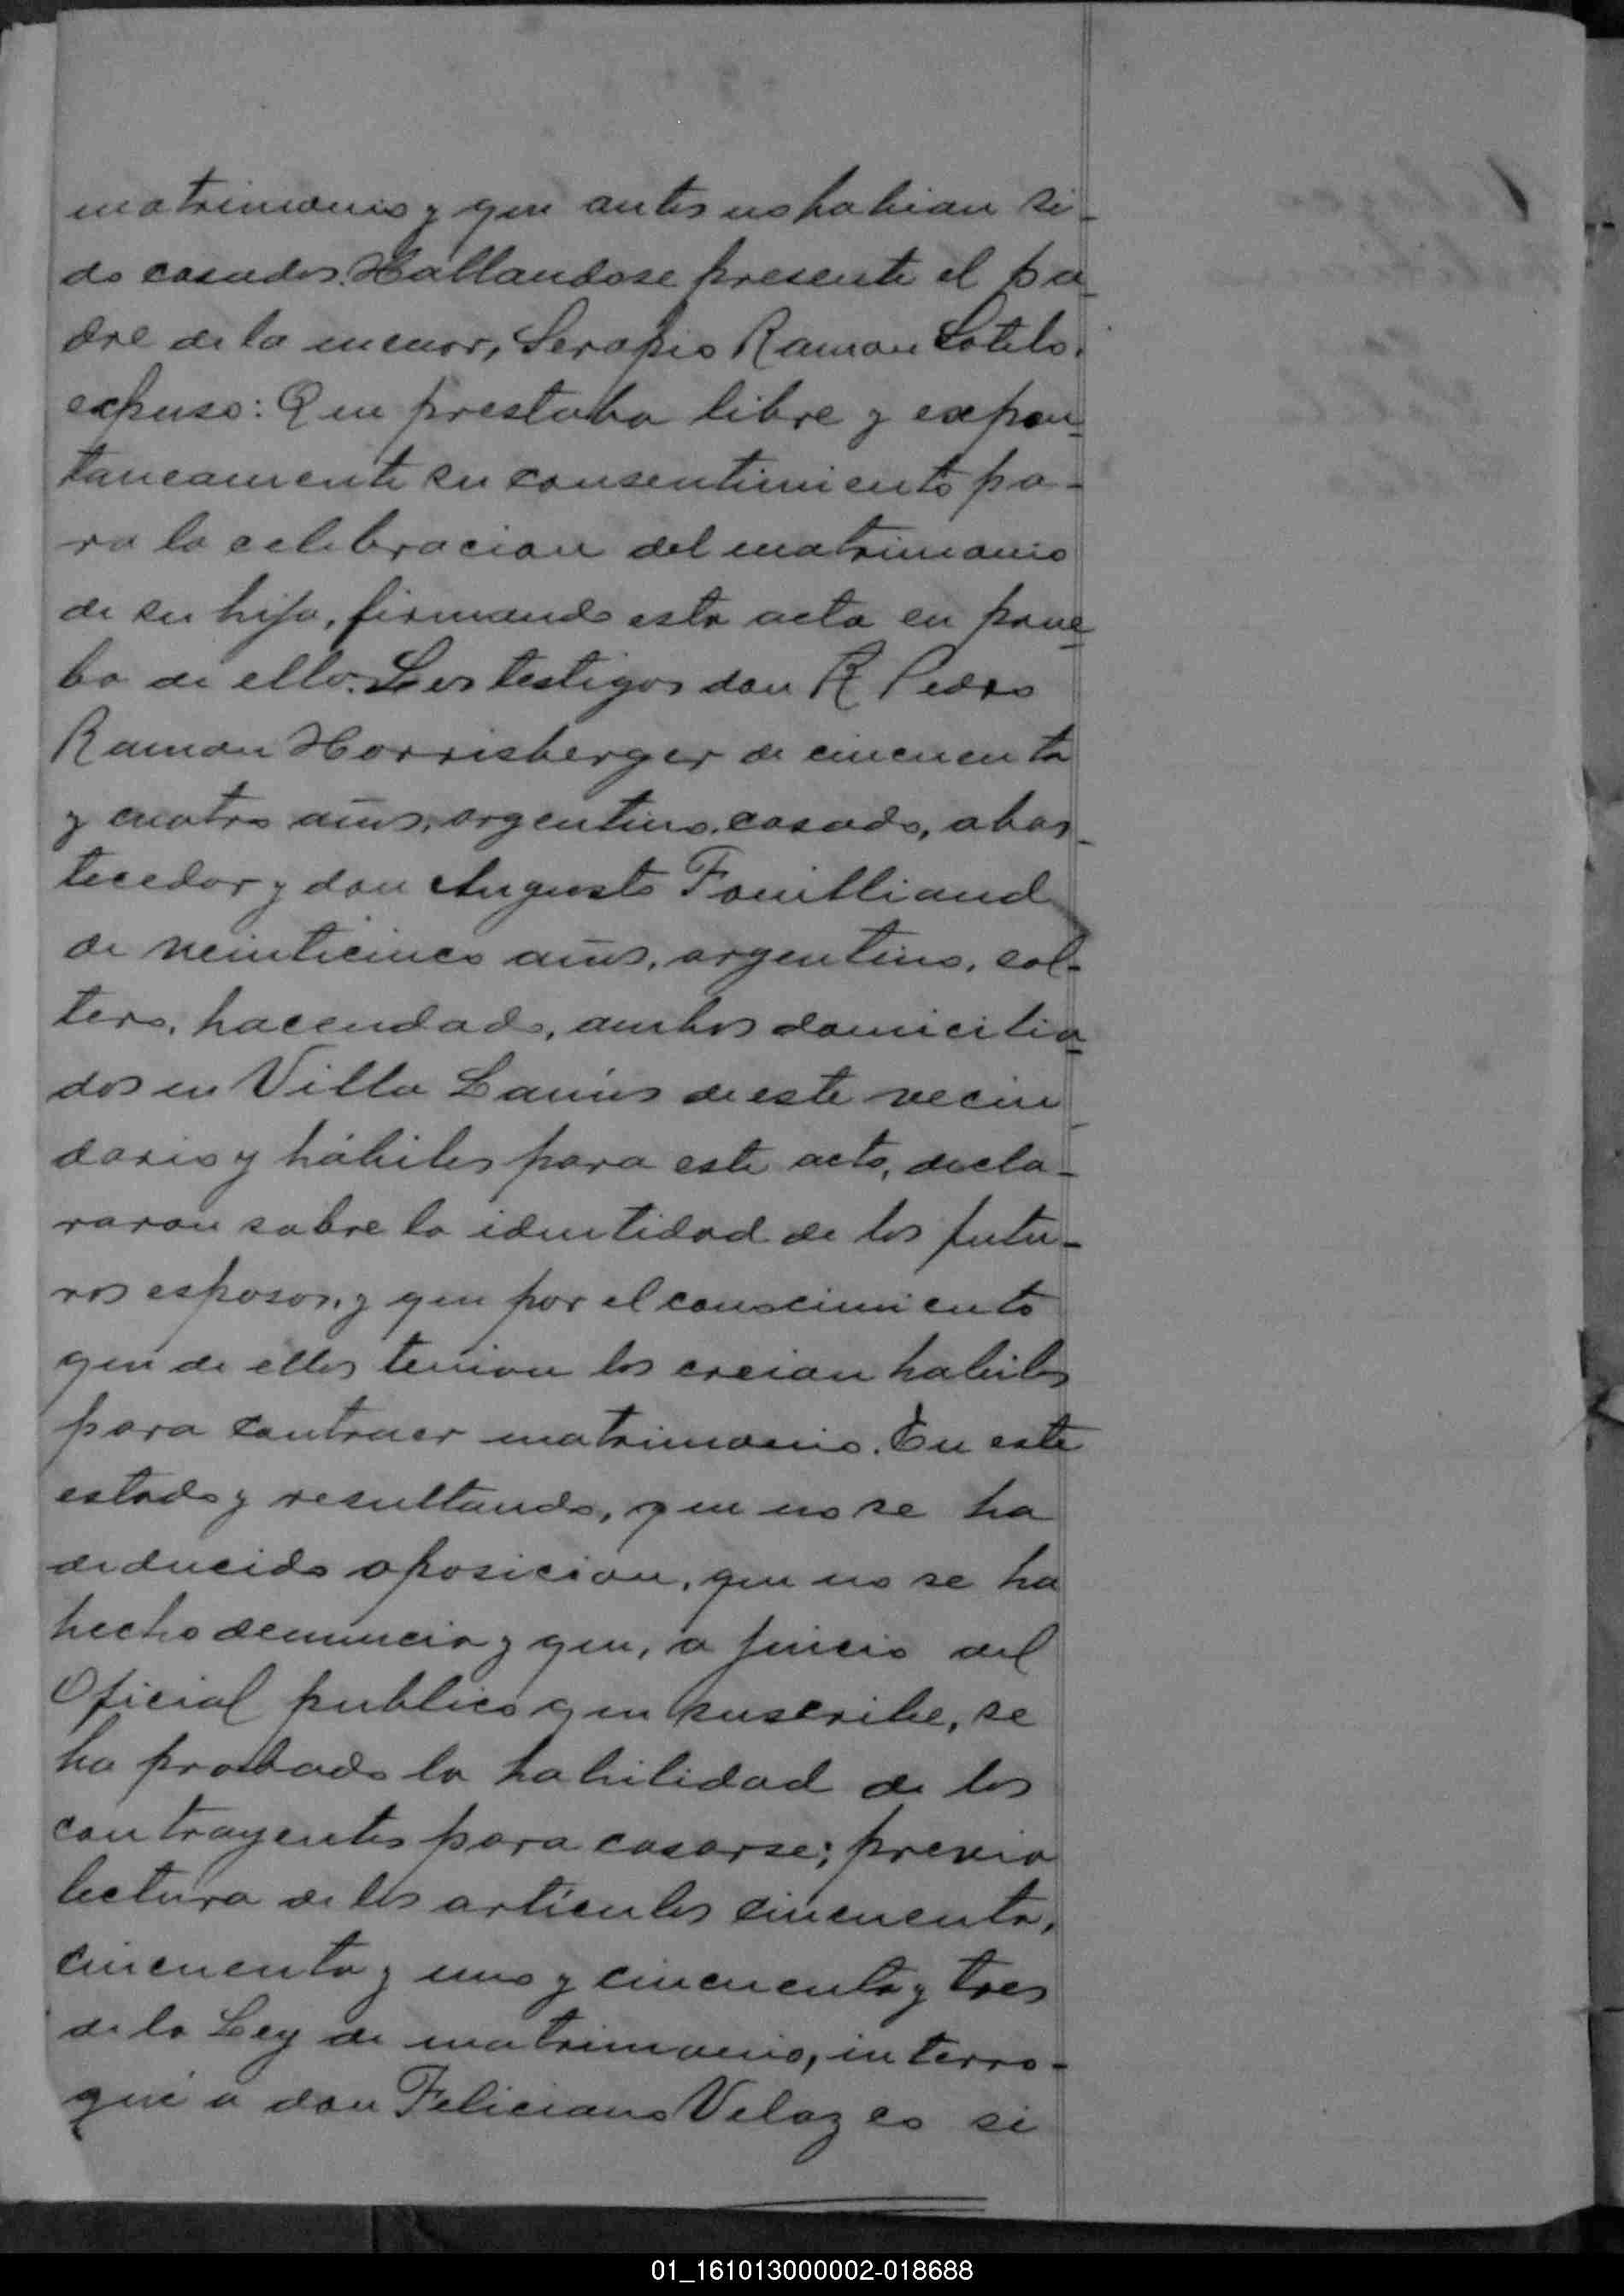 matrimonio y que antes no habian si-
do casados. Hallandose presente el pa-
dre de la menor, Serapio Ramon Sotelo,
expuso: Que prestaba libre y expon-
taneamente su consentimiento pa-
ra la celebracion del matrimonio
de su hija, firmando esta acta en prue-
ba de ello. Los testigos don R Pedro
Ramon Horrisberger de cincuenta
y cuatro años, argentino, casado, abas-
tecedor y don Augusto Fouilliand
de veinticinco años, argentino, sol-
tero, hacendado, ambos domicilia-
dos en Villa Lanús de este vecin-
dario y hábiles para este acto, decla-
raron sobre la identidad de los futu-
ros esposos, y que por el conocimiento
que de ellos tenian los creian habiles
para contraer matrimonio. En este
estado y resultando, que no se ha
deducido oposicion, que no se ha
hecho denuncia y que, a juicio del
Oficial publico que suscribe, se
ha probado la habilidad de los
contrayentes para casarse; previa
lectura de los artículos cincuenta,
cincuenta y uno y cincuenta y tres
de la Ley de matrimonio, interro-
gué a don Feliciano Velazco si
01_161013000002-018688